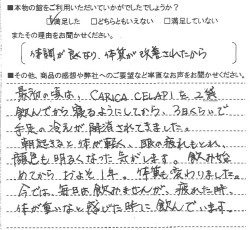 ■本物の館をご利用いただいていかがでしたでしょうか?
☑満足した □どちらともいえない □満足していない
またその理由をお聞かせください。
体調が良くなり、体質が改善されたから
■その他、商品の感想や弊社へのご要望など率直なお声をお聞かせください。
最初の頃は、CARICA CELAPIを2袋
飲んでから寝るようにしてから、3日くらいで
手足の冷えが解消されてきました。
朝起きると体が軽く、眼の疲れもとれ、
顔色も明るくなった気がします。飲み始
めてからおよそ1年。体質も変わりました。
今では、毎日は飲みませんが、疲れた時、
体が重いなと感じた時に飲んでいます。